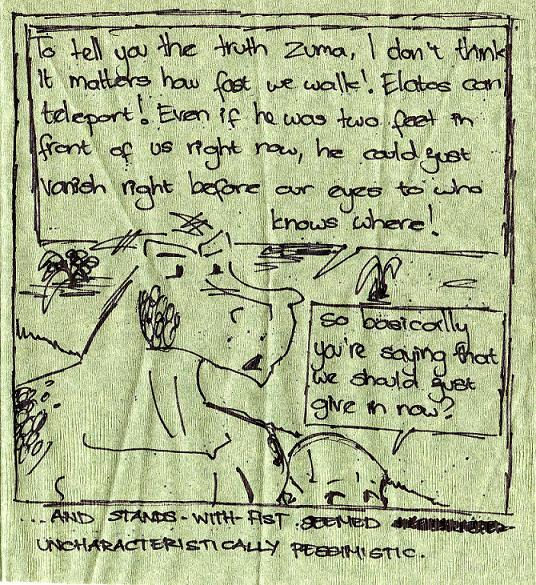 To tell you the truth Zuma, I don't think
it matters how fast we walk! Elatos can
teleport! Even if he was two feet in
front of us right now, he could just
vanish right before our eyes to who
knows where!
so basically
you're saying that
we should just
give in now?
...AND STANDS-WITH-FIST SEEMED
UNCHARACTERISTICALLY PESSIMISTIC.